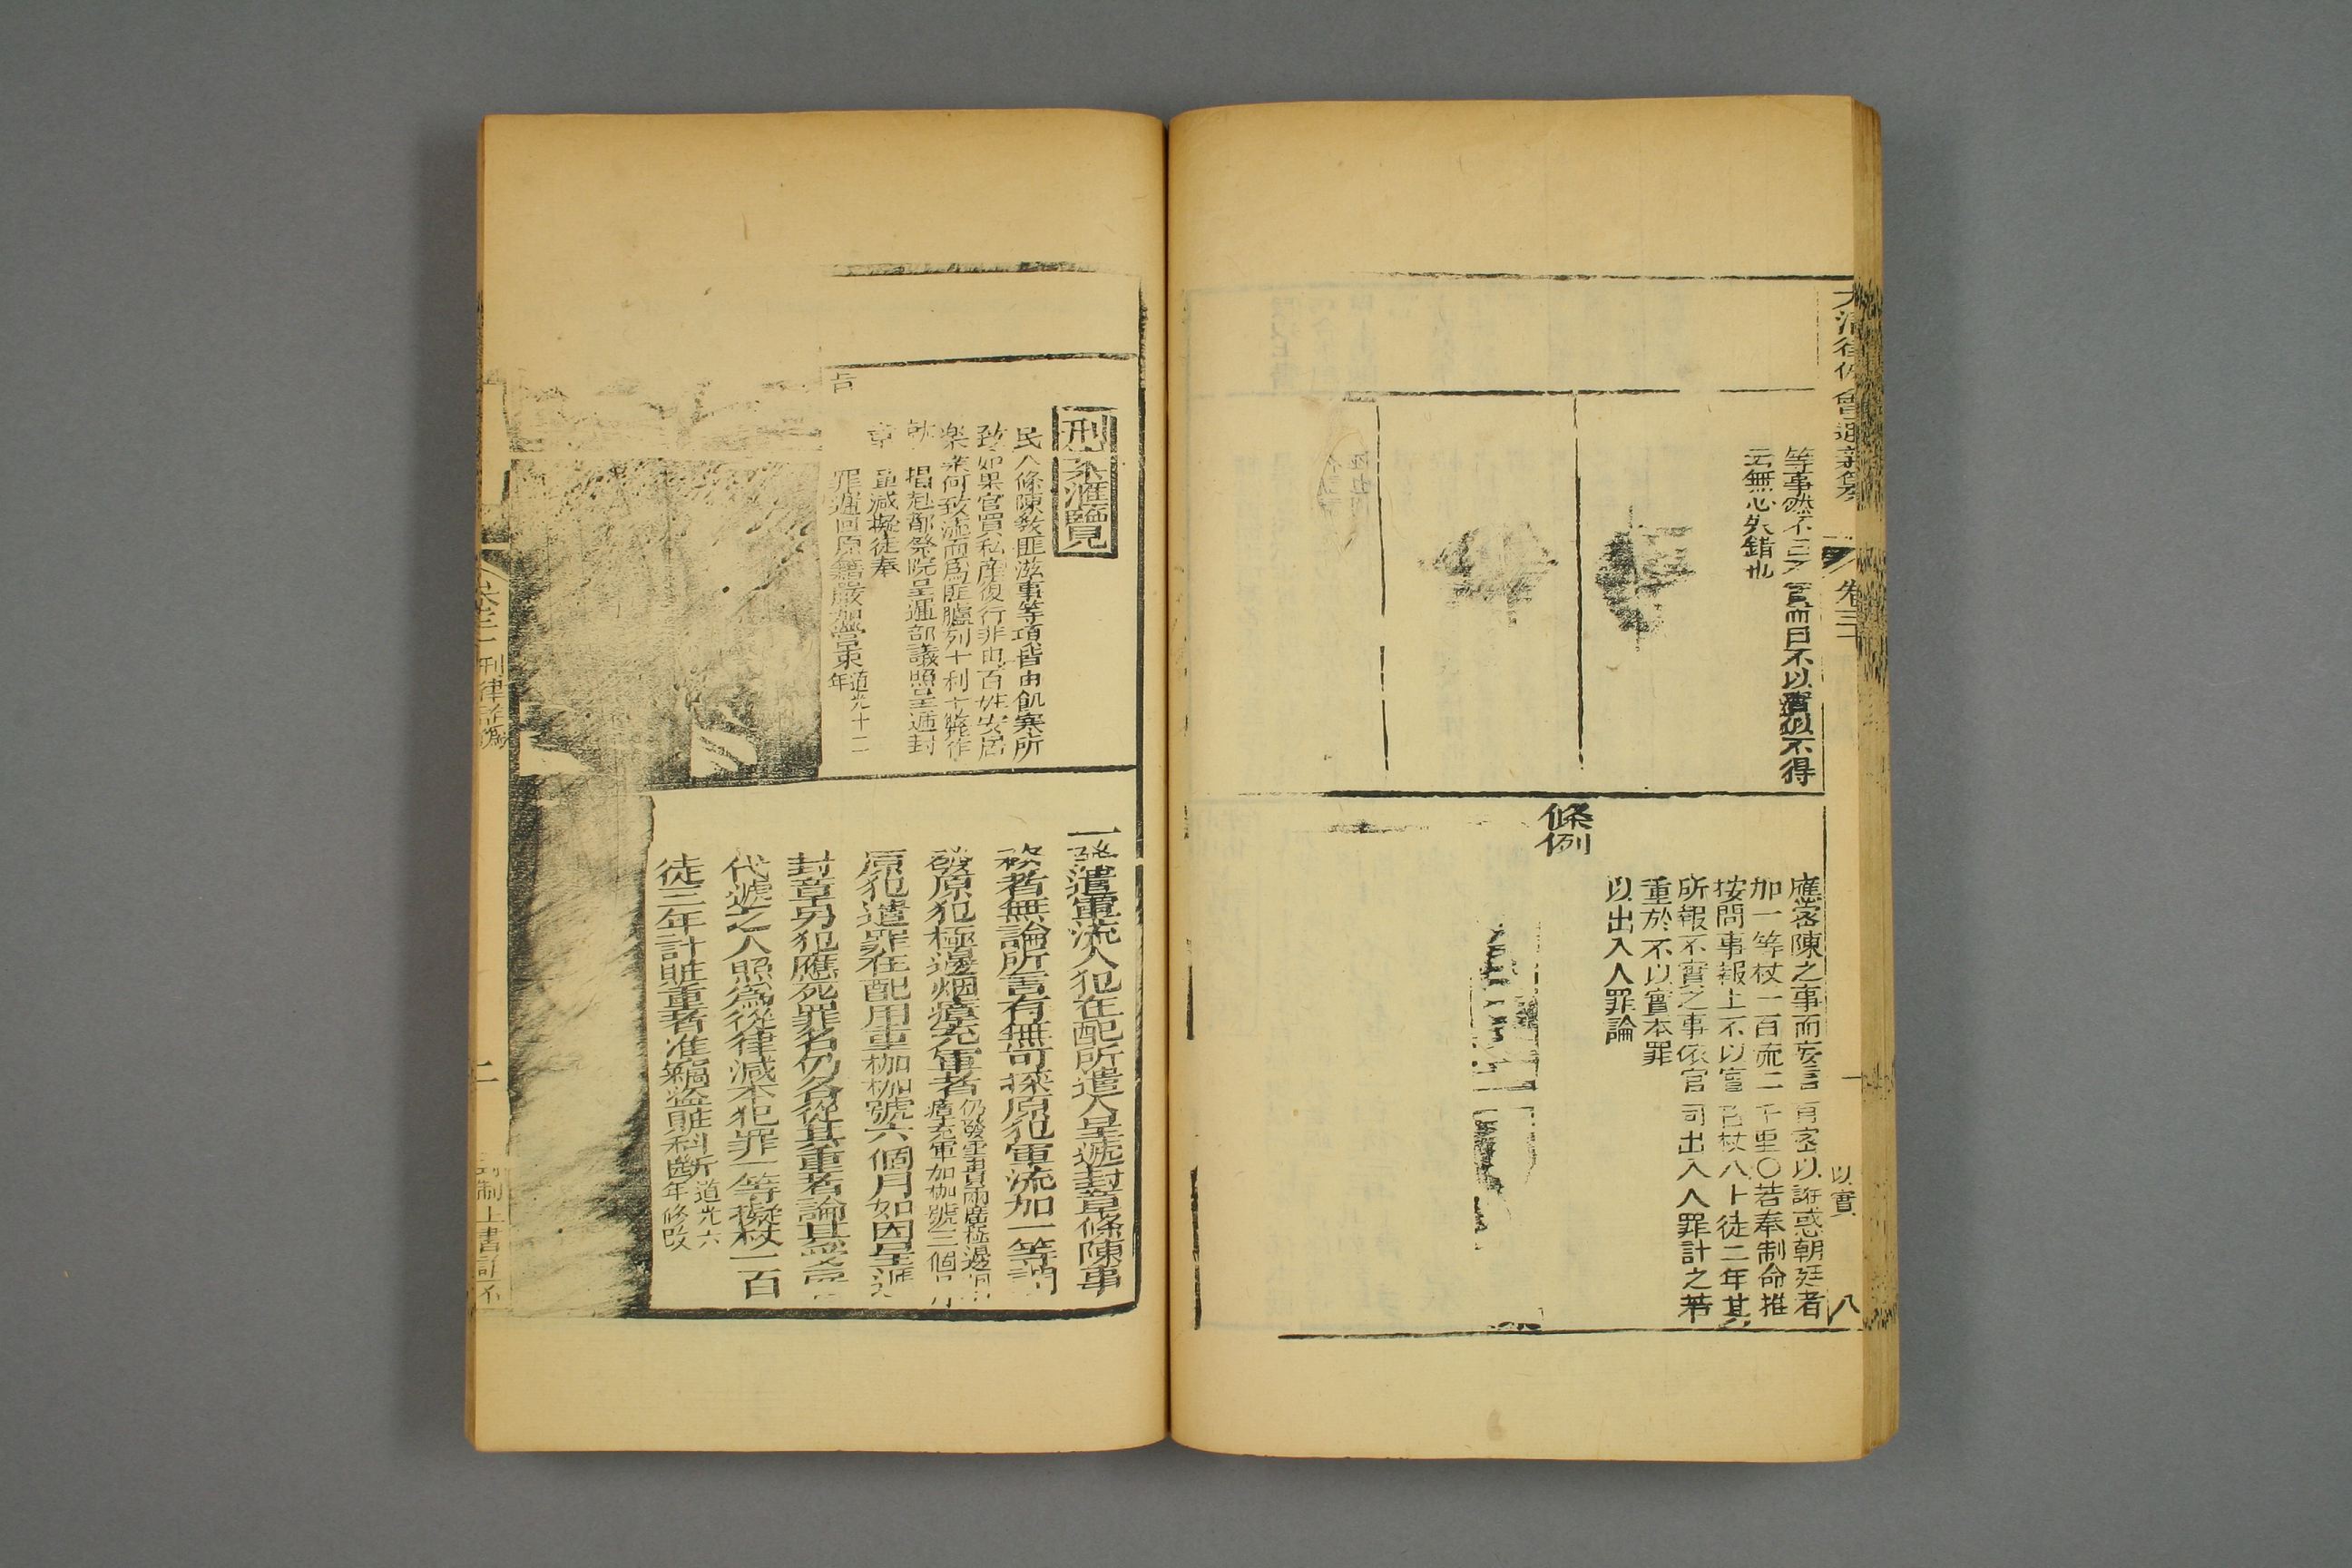 大清律例會通新纂
卷三十
以實
八
等事然不
而曰不以實似不得
云無心失錯也
應密陳之事而妄言有密以誑惑朝廷者
加一等杖一百流二千里〇若奉制命推
按問事報上不以實者杖八十徒二年其
所報不實之事依官司出入人罪計之若
重於不以實本罪
以出入人罪論
條例
刑案滙覽
民八條陳敎匪滋事等項皆由飢寒所
致如果官買私產復行非由百姓安居
樂業何致流而爲匪臚列十利十弊作
就摺赴都察院呈遞部議照呈遞封
章 減擬徒奉
旨
罪遞回原籍嚴加管束道光十二
年
一發遣軍流人犯在配所遣人呈遞封章條陳事
欵者無論所言有無可採原犯軍流加一等調
發原犯極邊烟瘴充軍者
瘴充軍加枷號三個月
原犯遣罪在配用重枷枷號六個月如因呈遞
封章另犯應死罪名仍各從其重者論其
代遞之人照爲從律減本犯罪一等擬杖一百
徒三年計贓重者准竊盜贓科斷道光六
年修改
刑律詐僞
二
制上書詐不